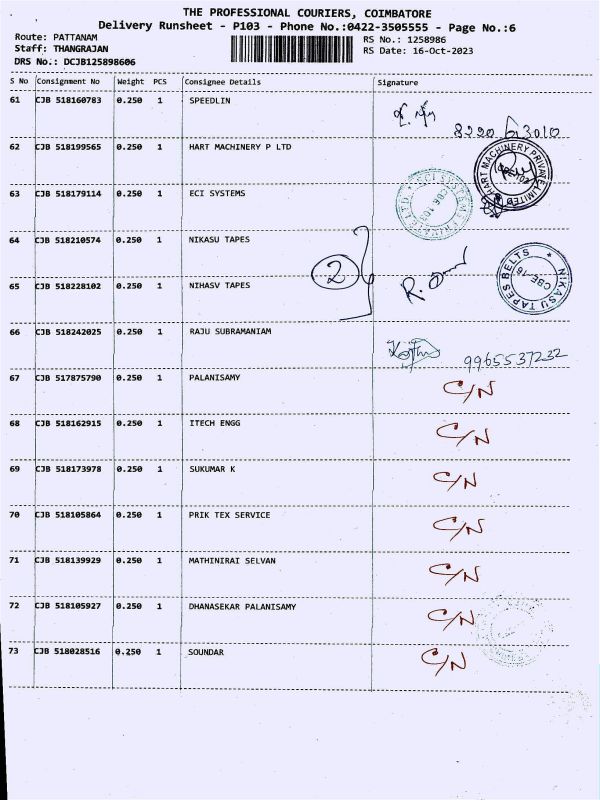 THE PROFESSIONAL COURIERS, COIMBATORE
Delivery Runsheet - P103 - Phone No.:0422-3505555 - Page No.:6
Route: PATTANAM
RS No.: 1258986
Staff: THANGRAJAN
RS Date: 16-Oct-2023
DRS No.: DCJB125898606
S No Consignment No Weight PCS Consignee Details Signature
61 CJB 518160783 0.250 1 SPEEDLIN
62 CJB 518199565 0.250 1 HART MACHINERY P LTD
HART MACHINERY PRIVATE LIMITED
63 CJB 518179114 0.250 1 ECI SYSTEMS
ECI SYSTEMS PRIVATE LTD CBE 103
64 CJB 518210574 0.250 1 NIKASU TAPES
2
NIKASU TAPES BELTS CBE 16
65 CJB 518228102 0.250 1 NIHASV TAPES
66 CJB 518242025 0.250 1 RAJU SUBRAMANIAM
9965537232
67 CJB 517875790 0.250 1 PALANISAMY C/N
68 CJB 518162915 0.250 1 ITECH ENGG C/N
69 CJB 518173978 0.250 1 SUKUMAR K C/N
70 CJB 518105864 0.250 1 PRIK TEX SERVICE C/N
71 CJB 518139929 0.250 1 MATHINIRAI SELVAN C/N
72 CJB 518105927 0.250 1 DHANASEKAR PALANISAMY C/N
73 CJB 518028516 0.250 1 SOUNDAR C/N